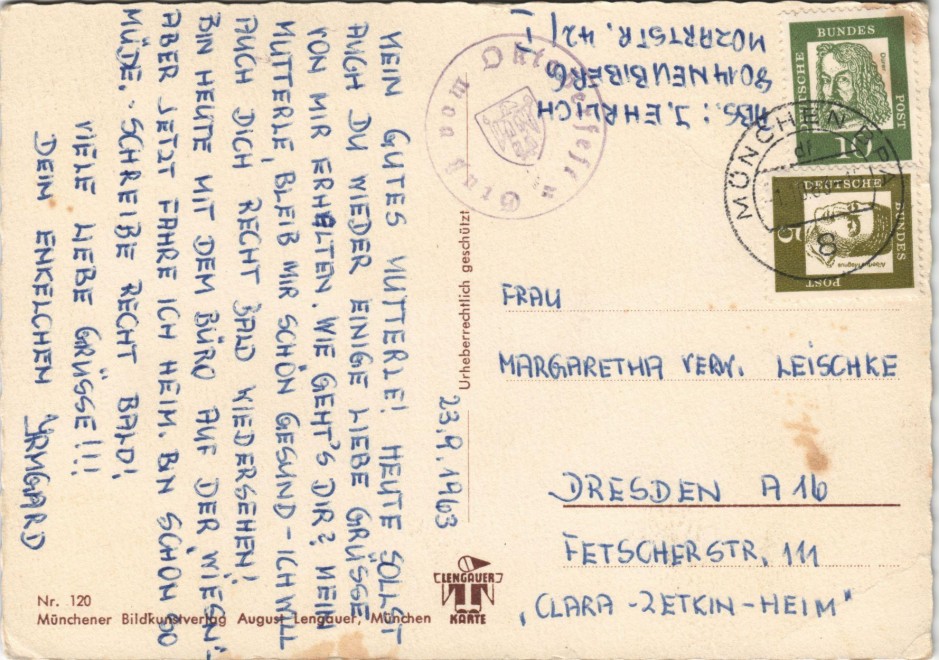 23.9.1963
MEIN GUTES MUTTERLE! HEUTE SOLLST
AUCH DU WIEDER EINIGE LIEBE GRÜSSE
VON MIR ERHALTEN. WIE GEHT'S DIR? MEIN
MUTTERLE, BLEIB MIR SCHÖN GESUND - ICH WILL
AUCH DICH RECHT BALD WIEDERSEHEN!
BIN HEUTE MIT DEM BÜRO AUF DER "WIESN".
ABER JETZT FAHRE ICH HEIM. BIN SCHON SO
MÜDE. SCHREIBE RECHT BALD!
VIELE LIEBE GRÜSSE!!!
DEIN ENKELCHEN IRMGARD
Nr. 120
Münchener Bildkunstverlag August Lengauer, München
Urheberrechtlich geschützt
LENGAUER
KARTE
Gruß vom Oktoberfest
ABS.: I. EHRLICH
8014 NEUBIBERG
MOZARTSTR. 42/I
DEUTSCHE BUNDESPOST
10
DEUTSCHE BUNDESPOST
5
Albertus Magnus
MÜNCHEN
8
FRAU
MARGARETHA VERW. LEISCHKE
DRESDEN A 16
FETSCHERSTR. 111
"CLARA-ZETKIN-HEIM"